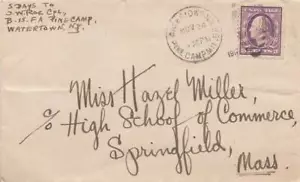 5 DAYS TO
B-11 F.A PINE CAMP,
WATERTOWN, N.Y.
Miss Hazel Miller,
c/o High School of Commerce,
Springfield,
Mass.